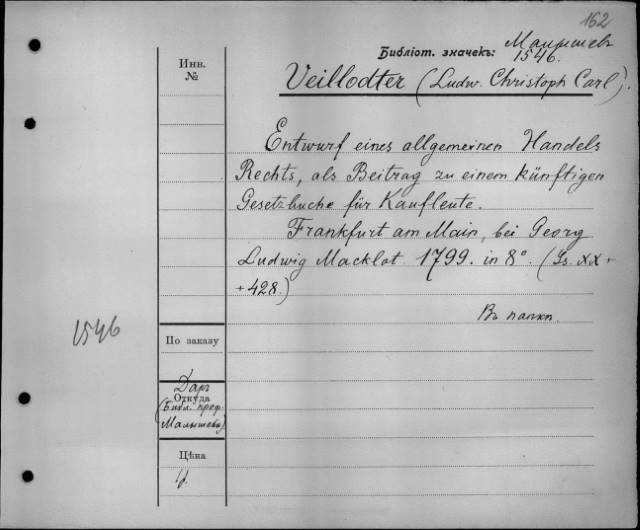 162
Малышевъ
Библіот. значекъ: 1546.
Инв.
№
Veillodter (Ludw. Christoph Carl).
Entwurf eines allgemeinen Handels
Rechts, als Beitrag zu einem künftigen
Gesetzbuche für Kaufleute.
Frankfurt am Main, bei Georg
Ludwig Macklot 1799. in 8°. (Ss. XX +
+ 428.)
Въ папкѣ.
1546
По заказу
Даръ
Откуда
(Библ. проф.
Малышева)
Цѣна